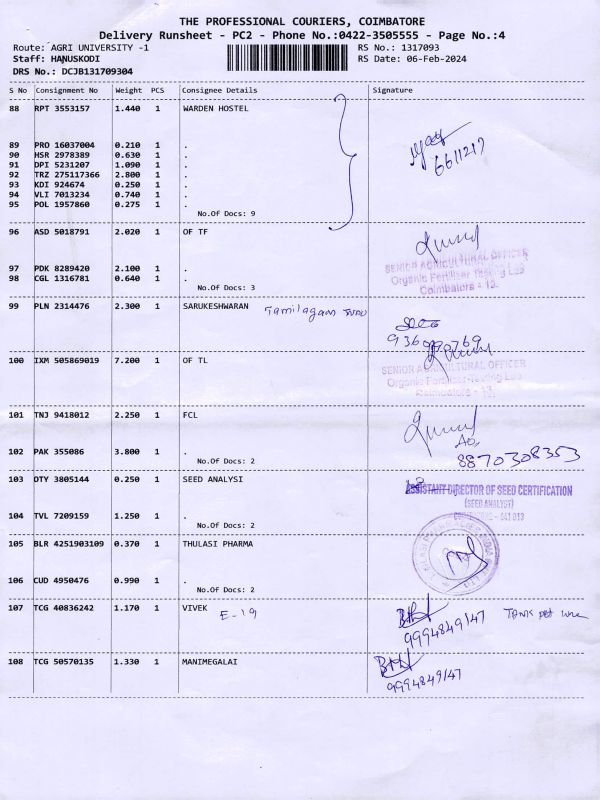 THE PROFESSIONAL COURIERS, COIMBATORE
Delivery Runsheet - PC2 - Phone No.:0422-3505555 - Page No.:4
Route: AGRI UNIVERSITY -1 RS No.: 1317093
Staff: HANUSKODI RS Date: 06-Feb-2024
DRS No.: DCJB131709304
S No Consignment No Weight PCS Consignee Details Signature
88 RPT 3553157 1.440 1 WARDEN HOSTEL
6611217
89 PRO 16037004 0.210 1 .
90 HSR 2978389 0.630 1 .
91 DPI 5231207 1.090 1 .
92 TRZ 275117366 2.800 1 .
93 KDI 924674 0.250 1 .
94 VLI 7013234 0.740 1 .
95 POL 1957860 0.275 1 .
No.Of Docs: 9
96 ASD 5018791 2.020 1 OF TF
SENIOR AGRICULTURAL OFFICER
97 PDK 8289420 2.100 1 . Organic Fertiliser Testing Lab
98 CGL 1316781 0.640 1 . Coimbatore - 13.
No.Of Docs: 3
99 PLN 2314476 2.300 1 SARUKESHWARAN Tamilagam
100 IXM 505869019 7.200 1 OF TL
SENIOR AGRICULTURAL OFFICER
Organic Fertiliser Testing Lab
Coimbatore - 13.
101 TNJ 9418012 2.250 1 FCL
AO,
102 PAK 355086 3.800 1 . 8870308353
No.Of Docs: 2
103 DTY 3805144 0.250 1 SEED ANALYSI
ASSISTANT DIRECTOR OF SEED CERTIFICATION
(SEED ANALYST)
104 TVL 7209159 1.250 1 . COIMBATORE - 641 013
No.Of Docs: 2
105 BLR 4251903109 0.370 1 THULASI PHARMA
106 CUD 4950476 0.990 1 .
No.Of Docs: 2
107 TCG 40836242 1.170 1 VIVEK E-19
9994849147
108 TCG 50570135 1.330 1 MANIMEGALAI
9994849147